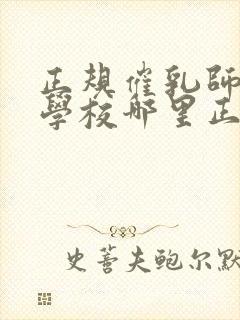 正規催乳師
學校哪里正
史蒂夫鲍尔默